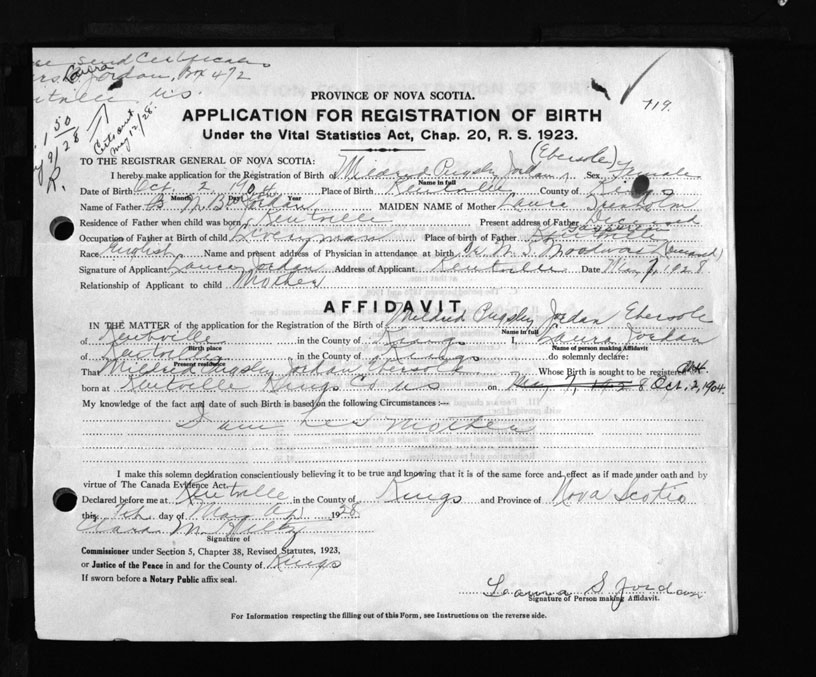 send Certificate
Laura
Jordan, Bx 472
N.S.
1 50
9/28
Cert sent
May 12/28.
R.
719.
PROVINCE OF NOVA SCOTIA.
APPLICATION FOR REGISTRATION OF BIRTH
Under the Vital Statistics Act, Chap. 20, R. S. 1923.
TO THE REGISTRAR GENERAL OF NOVA SCOTIA:
(Ebersole)
I hereby make application for the Registration of Birth of Mildred Pugsley Jordan Sex Female
Name in full
Date of Birth Oct. 2 1904 Place of Birth Kentville County of Kings
Month Day Year
Name of Father B. Jordan MAIDEN NAME of Mother Laura
Residence of Father when child was born Kentville Present address of Father Deceased
Occupation of Father at Birth of child Liveryman Place of birth of Father
Race English Name and present address of Physician in attendance at birth Dr. W. S. Woodworth (Deceased)
Signature of Applicant Laura Jordan Address of Applicant Kentville Date May 7, 1928
Relationship of Applicant to child Mother
AFFIDAVIT
IN THE MATTER of the application for the Registration of the Birth of Mildred Pugsley Jordan Ebersole
Name in full
of Kentville in the County of Kings I, Laura Jordan
Birth place Name of person making Affidavit
of Kentville in the County of Kings do solemnly declare:
Present residence
That Mildred Pugsley Jordan Ebersole Whose Birth is sought to be registered
born at Kentville Kings Co N.S on May 7, 1928 Oct. 2, 1904.
My knowledge of the fact and date of such Birth is based on the following Circumstances:—
I am her mother
I make this solemn declaration conscientiously believing it to be true and knowing that it is of the same force and effect as if made under oath and by
virtue of The Canada Evidence Act.
Declared before me at Kentville in the County of Kings and Province of Nova Scotia
this 7th day of May 1928
M.
Signature of
Commissioner under Section 5, Chapter 38, Revised Statutes, 1923,
or Justice of the Peace in and for the County of Kings
If sworn before a Notary Public affix seal.
Laura S. Jordan
Signature of Person making Affidavit.
For Information respecting the filling out of this Form, see Instructions on the reverse side.